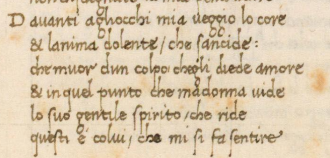 D auanti agliocchi mia ueggio lo core
& lanima dolente / che sancide:
che muor dun colpo chegli diede amore
& in quel punto che madonna uide
lo suo gentile spirito / che ride
questi è colui / che mi si fa sentire